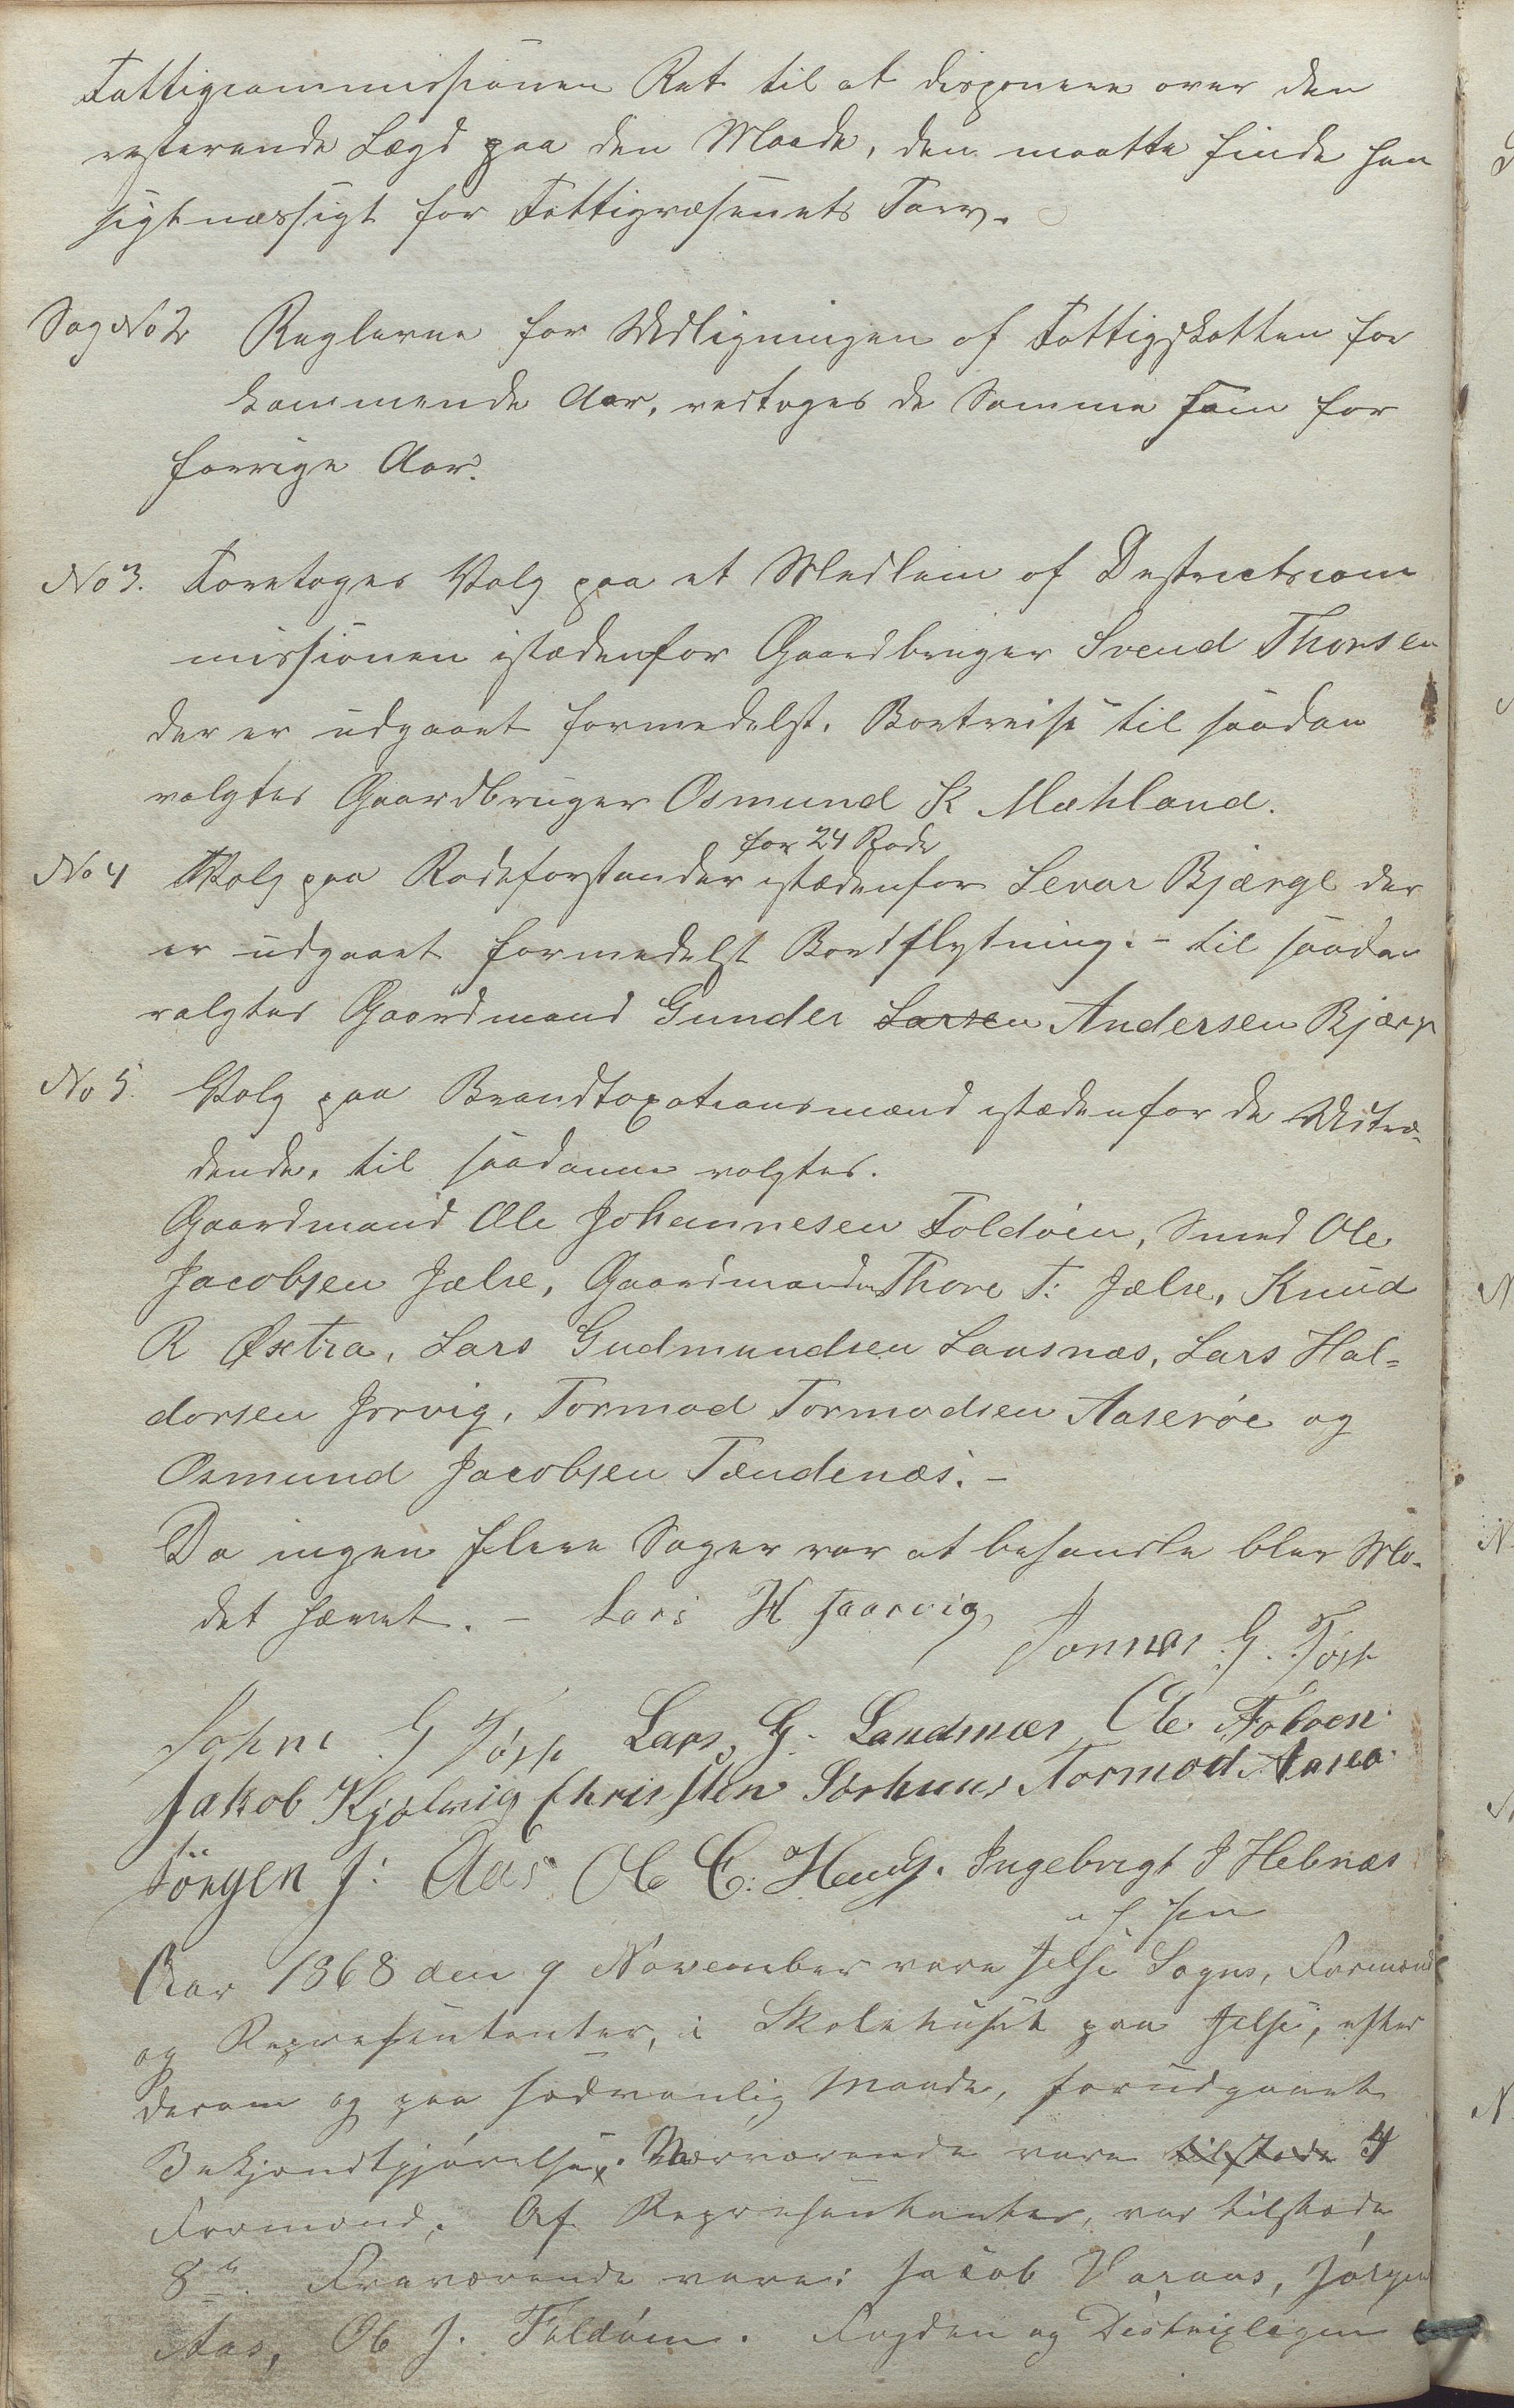 Fattigcommissionen Ret til at disponere over den
resterende Lægd paa den Maade, den maatte finde hen
sigtmæssigt for Fattigvæsenets Tarv.
Sag No 2 Reglerne for Udligningen af Fattigskatten for
kommende Aar, vedtoges de Samme som for
forrige Aar.
No 3. Foretoges Valg paa et Medlem af Destrictscom
missionen istædenfor Gaardbruger Svend Thorsen
der er udgaaet formedelst. Bortreise til saadan
valgtes Gaardbruger Osmund K Mæhland.
for 24 Rode
No 4 Valg paa Rodeforstander istædenfor Sevar Bjærge der
er udgaaet formedelst Bortflytning. - til saadan
valgtes Gaardmand Gunder Larsen Andersen Bjærge
No 5. Valg paa Brandtaxationsmænd istædenfor de Udtræ-
dende, til saadanne valgtes.
Gaardmand Ole Johannesen Foldøen, Smed Ole
Jacobsen Jælse, Gaardmænden Thore T: Jælse, Knud
R Øxtra, Lars Gudmundsen Lansnæs, Lars Hal-
dorsen Jørvig, Tormod Tormodsen Aaserøe og
Osmund Jacobsen Tændenæs. -
Da ingen flere Sager var at behandle blev Mø-
det hævet. - Lars H Jaarvig
Jonnas G. Tøsse
Johne G Tøsse Lars G. Landsnæs Ole Foldøen
Jakob Kjølvig Christen Sørhuus Tormod Aaserø
Jörgen J: Aas Ole C. Haug. Ingebrigt J Hebnæs
Aar 1868 den 9 November vare Jelse Sogns, Formænd
og Repræsentanter, i Skolehuset paa Jelse, efter
derom og paa sædvanlig Maade, forudgaaet
Bekjendtgjørelse. Nærværende vare tilstede 4
Formænd. Af Repræsentanter, var tilstede
8. Fraværende vare: Jacob Varaas, Jørgen
Aas, Ole J. Foldøen. Fogden og Distrixlægen